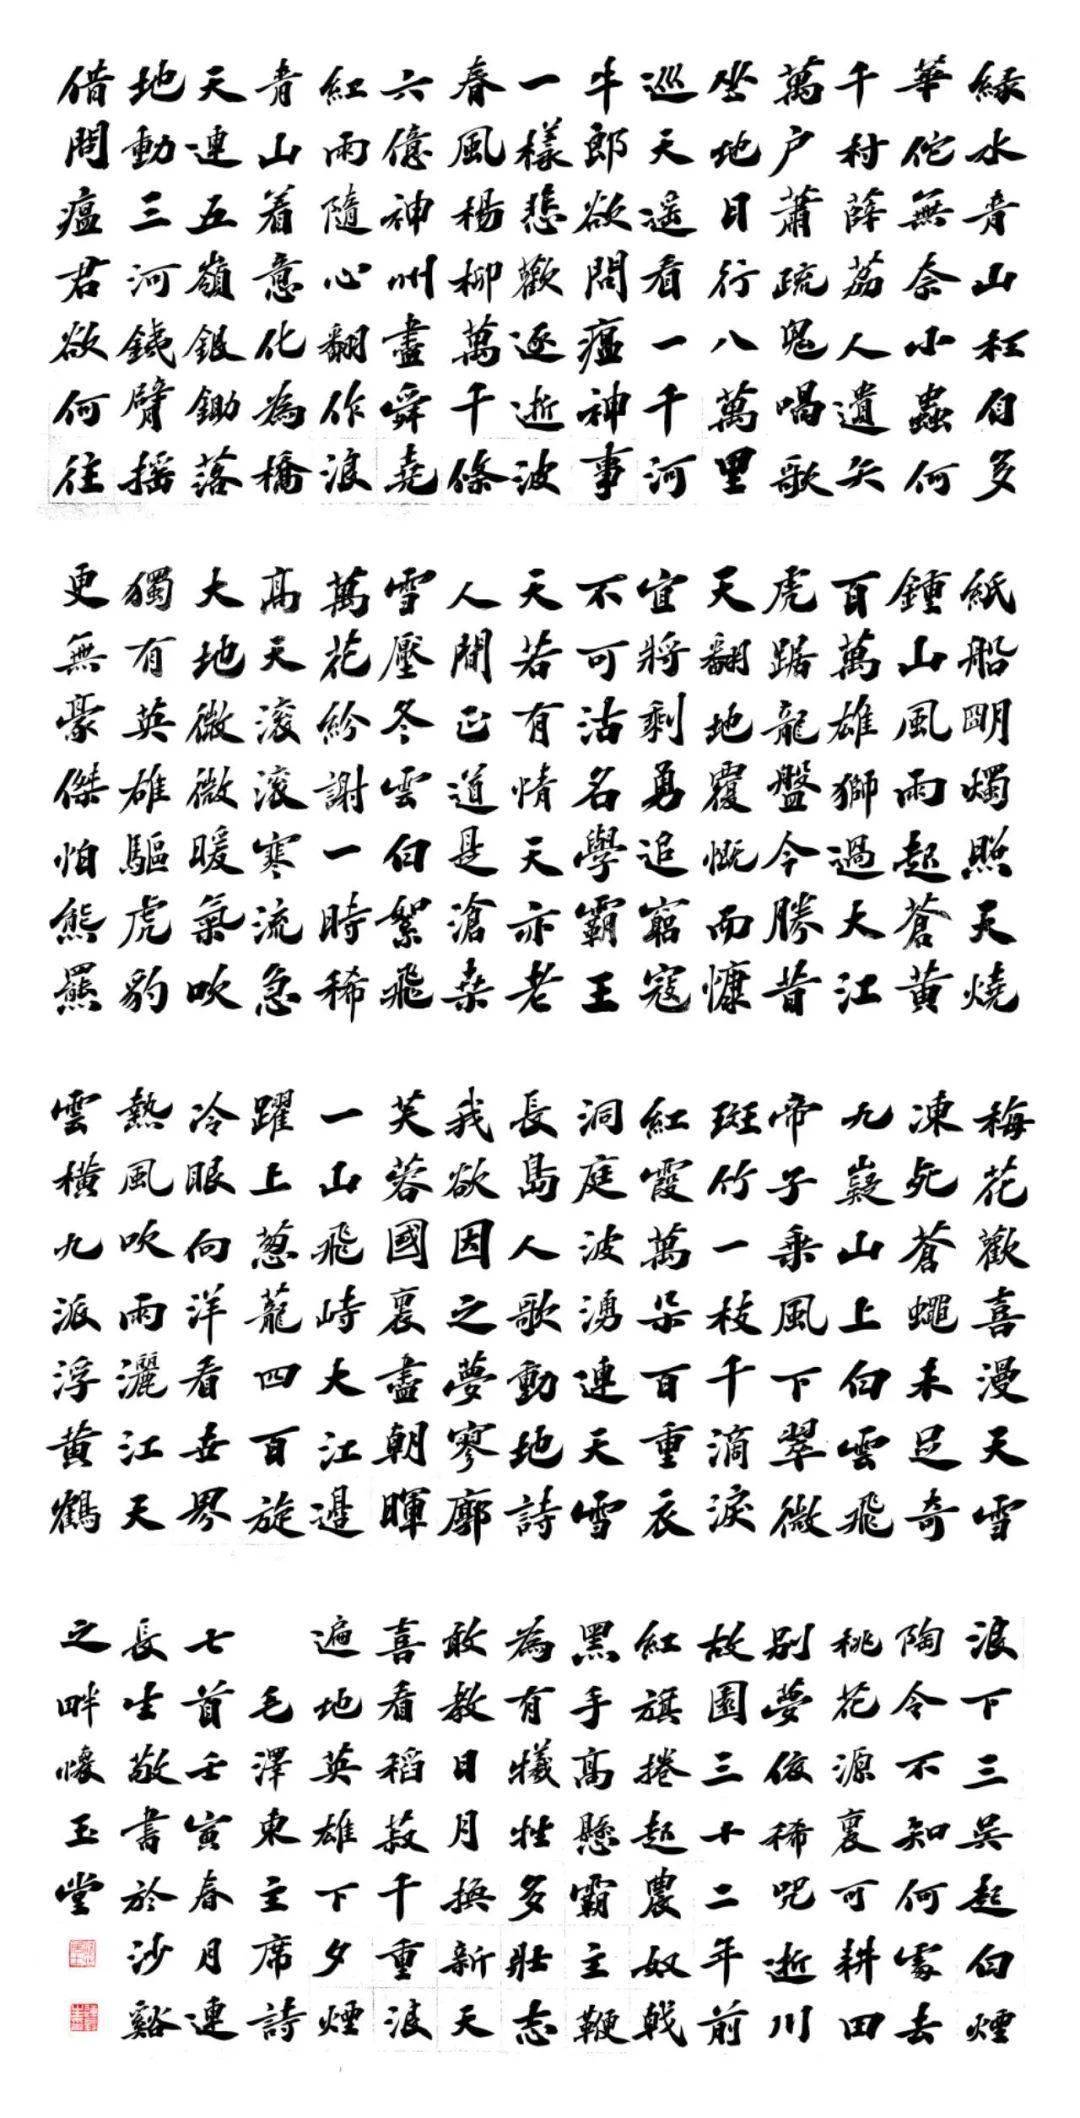 緑水青山枉自多
華佗無奈小蟲何
千村薜荔人遺矢
萬户蕭疏鬼唱歌
坐地日行八萬里
巡天遥看一千河
牛郎欲問瘟神事
一樣悲歡逐逝波
春風楊柳萬千條
六億神州盡舜堯
紅雨隨心翻作浪
青山着意化為橋
天連五嶺銀鋤落
地動三河鐵臂摇
借問瘟君欲何往
紙船明燭照天燒
鍾山風雨起蒼黄
百萬雄獅過大江
虎踞龍盤今勝昔
天翻地覆慨而慷
宜將剩勇追窮寇
不可沽名學霸王
天若有情天亦老
人間正道是滄桑
雪壓冬雲白絮飛
萬花紛謝一時稀
高天滚滚寒流急
大地微微暖氣吹
獨有英雄驅虎豹
更無豪傑怕熊羆
梅花歡喜漫天雪
凍死蒼蠅未足奇
九嶷山上白雲飛
帝子乘風下翠微
斑竹一枝千滴淚
紅霞萬朵百重衣
洞庭波湧連天雪
長島人歌動地詩
我欲因之夢寥廓
芙蓉國裏盡朝暉
一山飛峙大江邊
躍上葱蘢四百旋
冷眼向洋看世界
熱風吹雨灑江天
雲横九派浮黄鶴
浪下三吴起白煙
陶令不知何處去
桃花源裏可耕田
别夢依稀咒逝川
故園三十二年前
紅旗捲起農奴戟
黑手高懸霸主鞭
為有犧牲多壯志
敢教日月換新天
喜看稻菽千重浪
遍地英雄下夕煙
毛澤東主席詩
七首壬寅春月連
長生敬書於沙谿
之畔懷玉堂